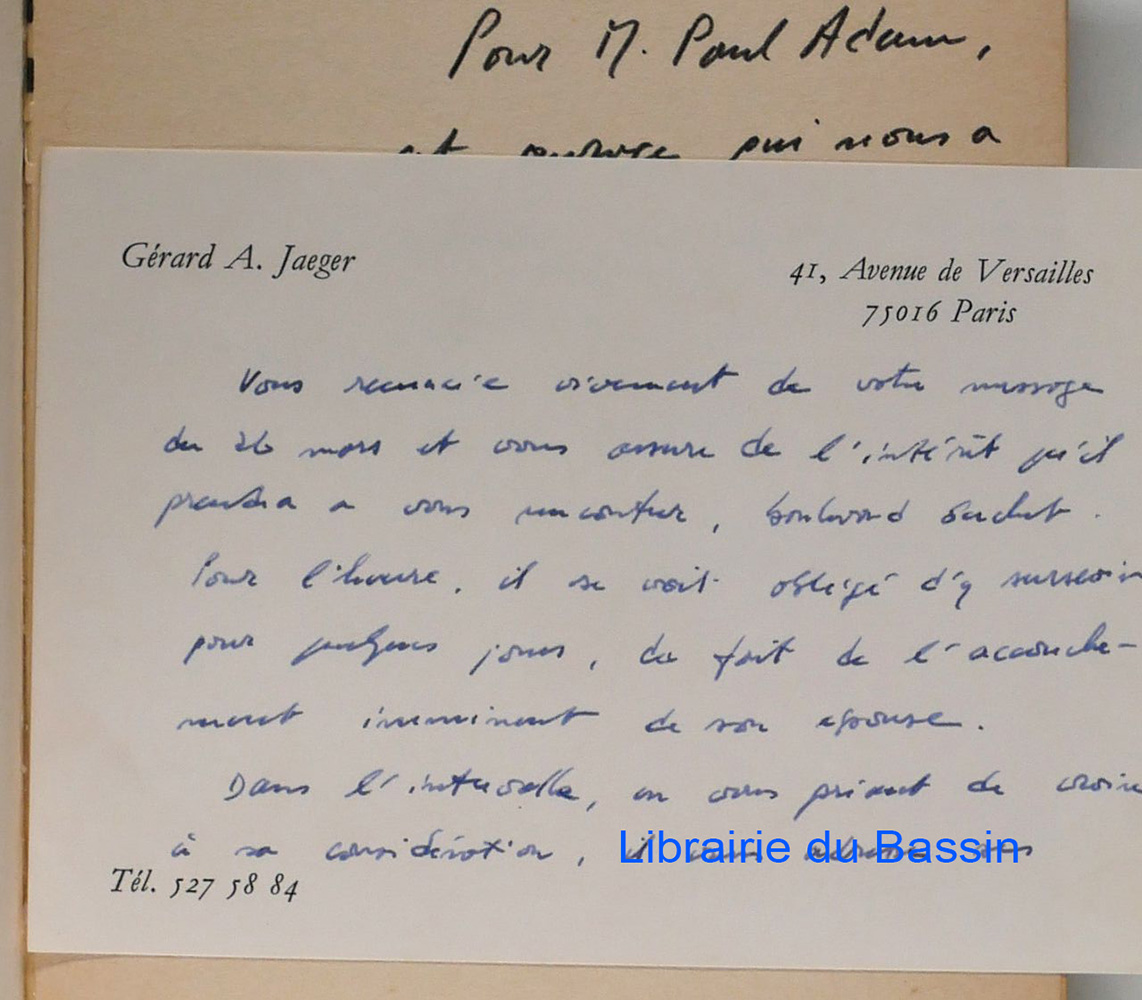 Pour M. Paul Adam,
ouvrage qui nous a
Gérard A. Jaeger
41, Avenue de Versailles
75016 Paris
Vous remercie vivement de votre message
du 26 mars et vous assure de l'intérêt qu'il
prendra a vous rencontrer, boulevard Suchet.
Pour l'heure, il se voit obligé d'y surseoir
pour quelques jours, du fait de l'accouche-
ment imminent de son épouse.
Dans l'intervalle, en vous priant de croire
à sa considération, il vous adresse ses
Librairie du Bassin
Tél. 527 58 84